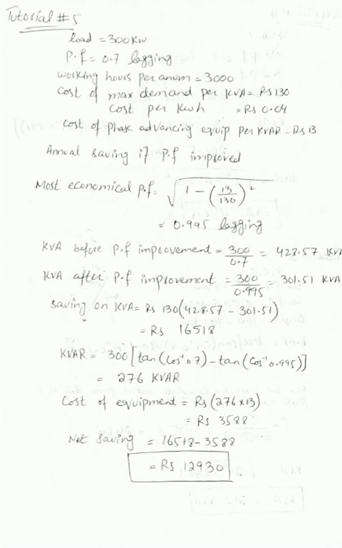 Tutorial #5
load = 300 KW
P.f = 0.7 lagging
working hours per anum = 3000
Cost of max demand per KVA = Rs 130
Cost per Kwh = Rs 0.04
cost of phase advancing equip per KVAR = Rs 13
Annual saving if P.f improved
Most economical P.f = √1 - (13/130)²
= 0.995 lagging
KVA before P.f improvement = 300/0.7 = 428.57 KVA
KVA after P.f improvement = 300/0.995 = 301.51 KVA
Saving on KVA = Rs 130(428.57 - 301.51)
= Rs 16518
KVAR = 300[tan(cos⁻¹0.7) - tan(cos⁻¹0.995)]
= 276 KVAR
Cost of equipment = Rs (276x13)
= Rs 3588
Net Saving = 16518-3588
= Rs 12930